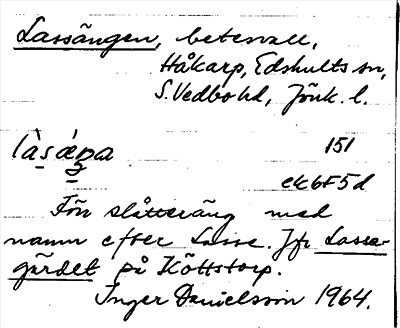 Lassängen, betesvall,
Håkarp, Edshults sn,
S. Vedbo hd, Jönk. l.
làsáŋa 151
ek6F5d
Förr slåtteräng med
namn efter Lasse. Jfr Lassa-
gärdet på Köttstorp.
Inger Danielsson 1964.